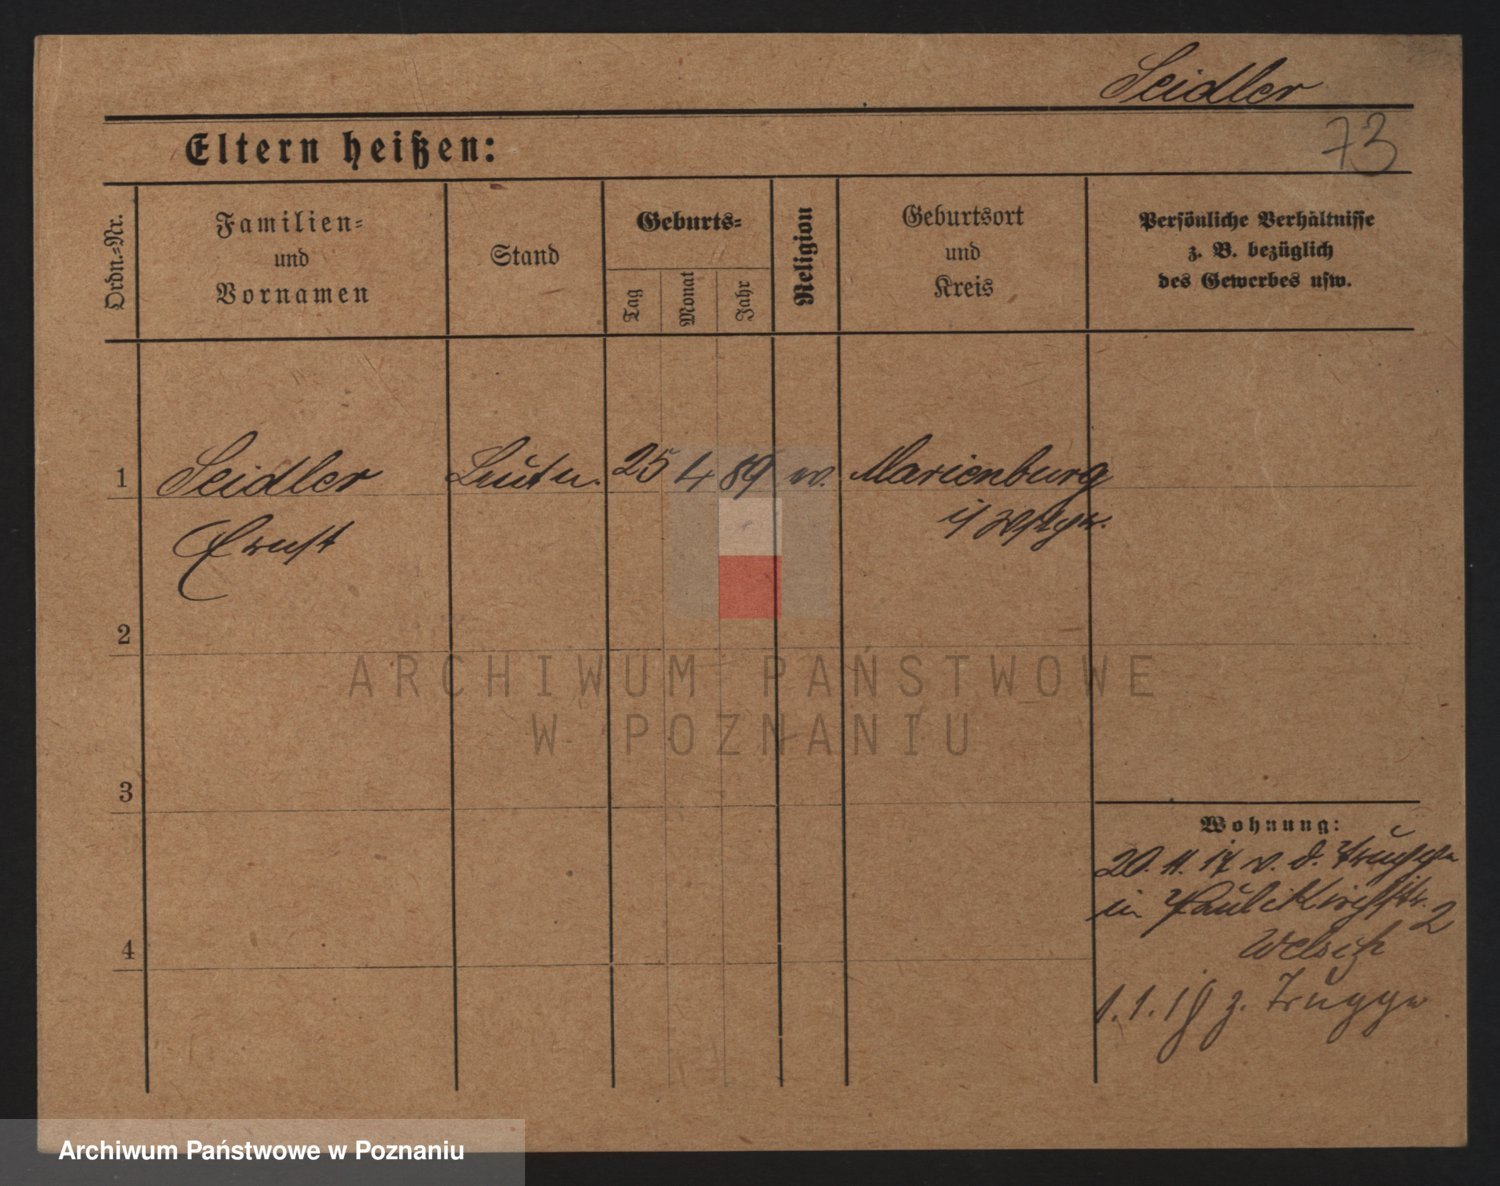 Seidler
73
Eltern heißen:
Ordn.-Nr.
Familien-
und
Vornamen
Stand
Geburts-
Tag
Monat
Jahr
Religion
Geburtsort
und
Kreis
Persönliche Verhältnisse
z. B. bezüglich
des Gewerbes usw.
1 Seidler Leutn. 25 4 89 ev. Marienburg
Ernst i/ Wstpr.
2
3
4
Wohnung:
20. 11. 17 v. d. Truppe
in Paulikirchstr. 2
1. 1. 19 z. Truppe
ARCHIWUM PAŃSTWOWE
W POZNANIU
Archiwum Państwowe w Poznaniu